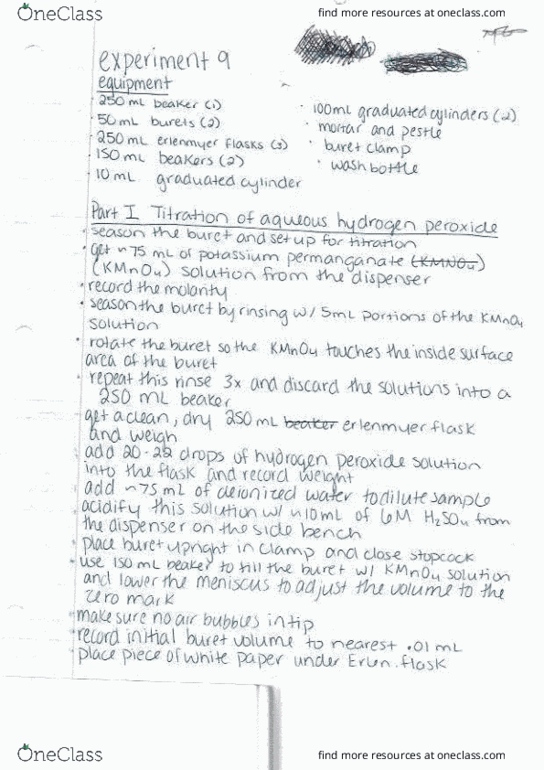 OneClass
find more resources at oneclass.com
experiment 9
equipment
· 250 mL beaker (1)
· 50 mL burets (2)
· 250 mL erlenmyer flasks (3)
· 150 mL beakers (2)
· 10 mL graduated cylinder
· 100mL graduated cylinders (2)
· mortar and pestle
· buret clamp
· wash bottle
Part I Titration of aqueous hydrogen peroxide
· season the buret and set up for titration
· get ~75 mL of potassium permanganate (KMNO4)
(KMnO4) solution from the dispenser
· record the molarity
· season the buret by rinsing w/ 5mL portions of the KMnO4
solution
· rotate the buret so the KMnO4 touches the inside surface
area of the buret
· repeat this rinse 3x and discard the solutions into a
250 mL beaker
get a clean, dry 250 mL beaker erlenmyer flask
and weigh
add 20-22 drops of hydrogen peroxide solution
into the flask and record weight
add ~75 mL of deionized water to dilute sample
acidify this solution w/ ~10mL of 6M H2SO4 from
the dispenser on the side bench
· place buret upright in clamp and close stopcock
· use 150 mL beaker to fill the buret w/ KMnO4 solution
and lower the meniscus to adjust the volume to the
zero mark
· make sure no air bubbles in tip
· record initial buret volume to nearest .01 mL
· place piece of white paper under Erlen. flask
OneClass
find more resources at oneclass.com